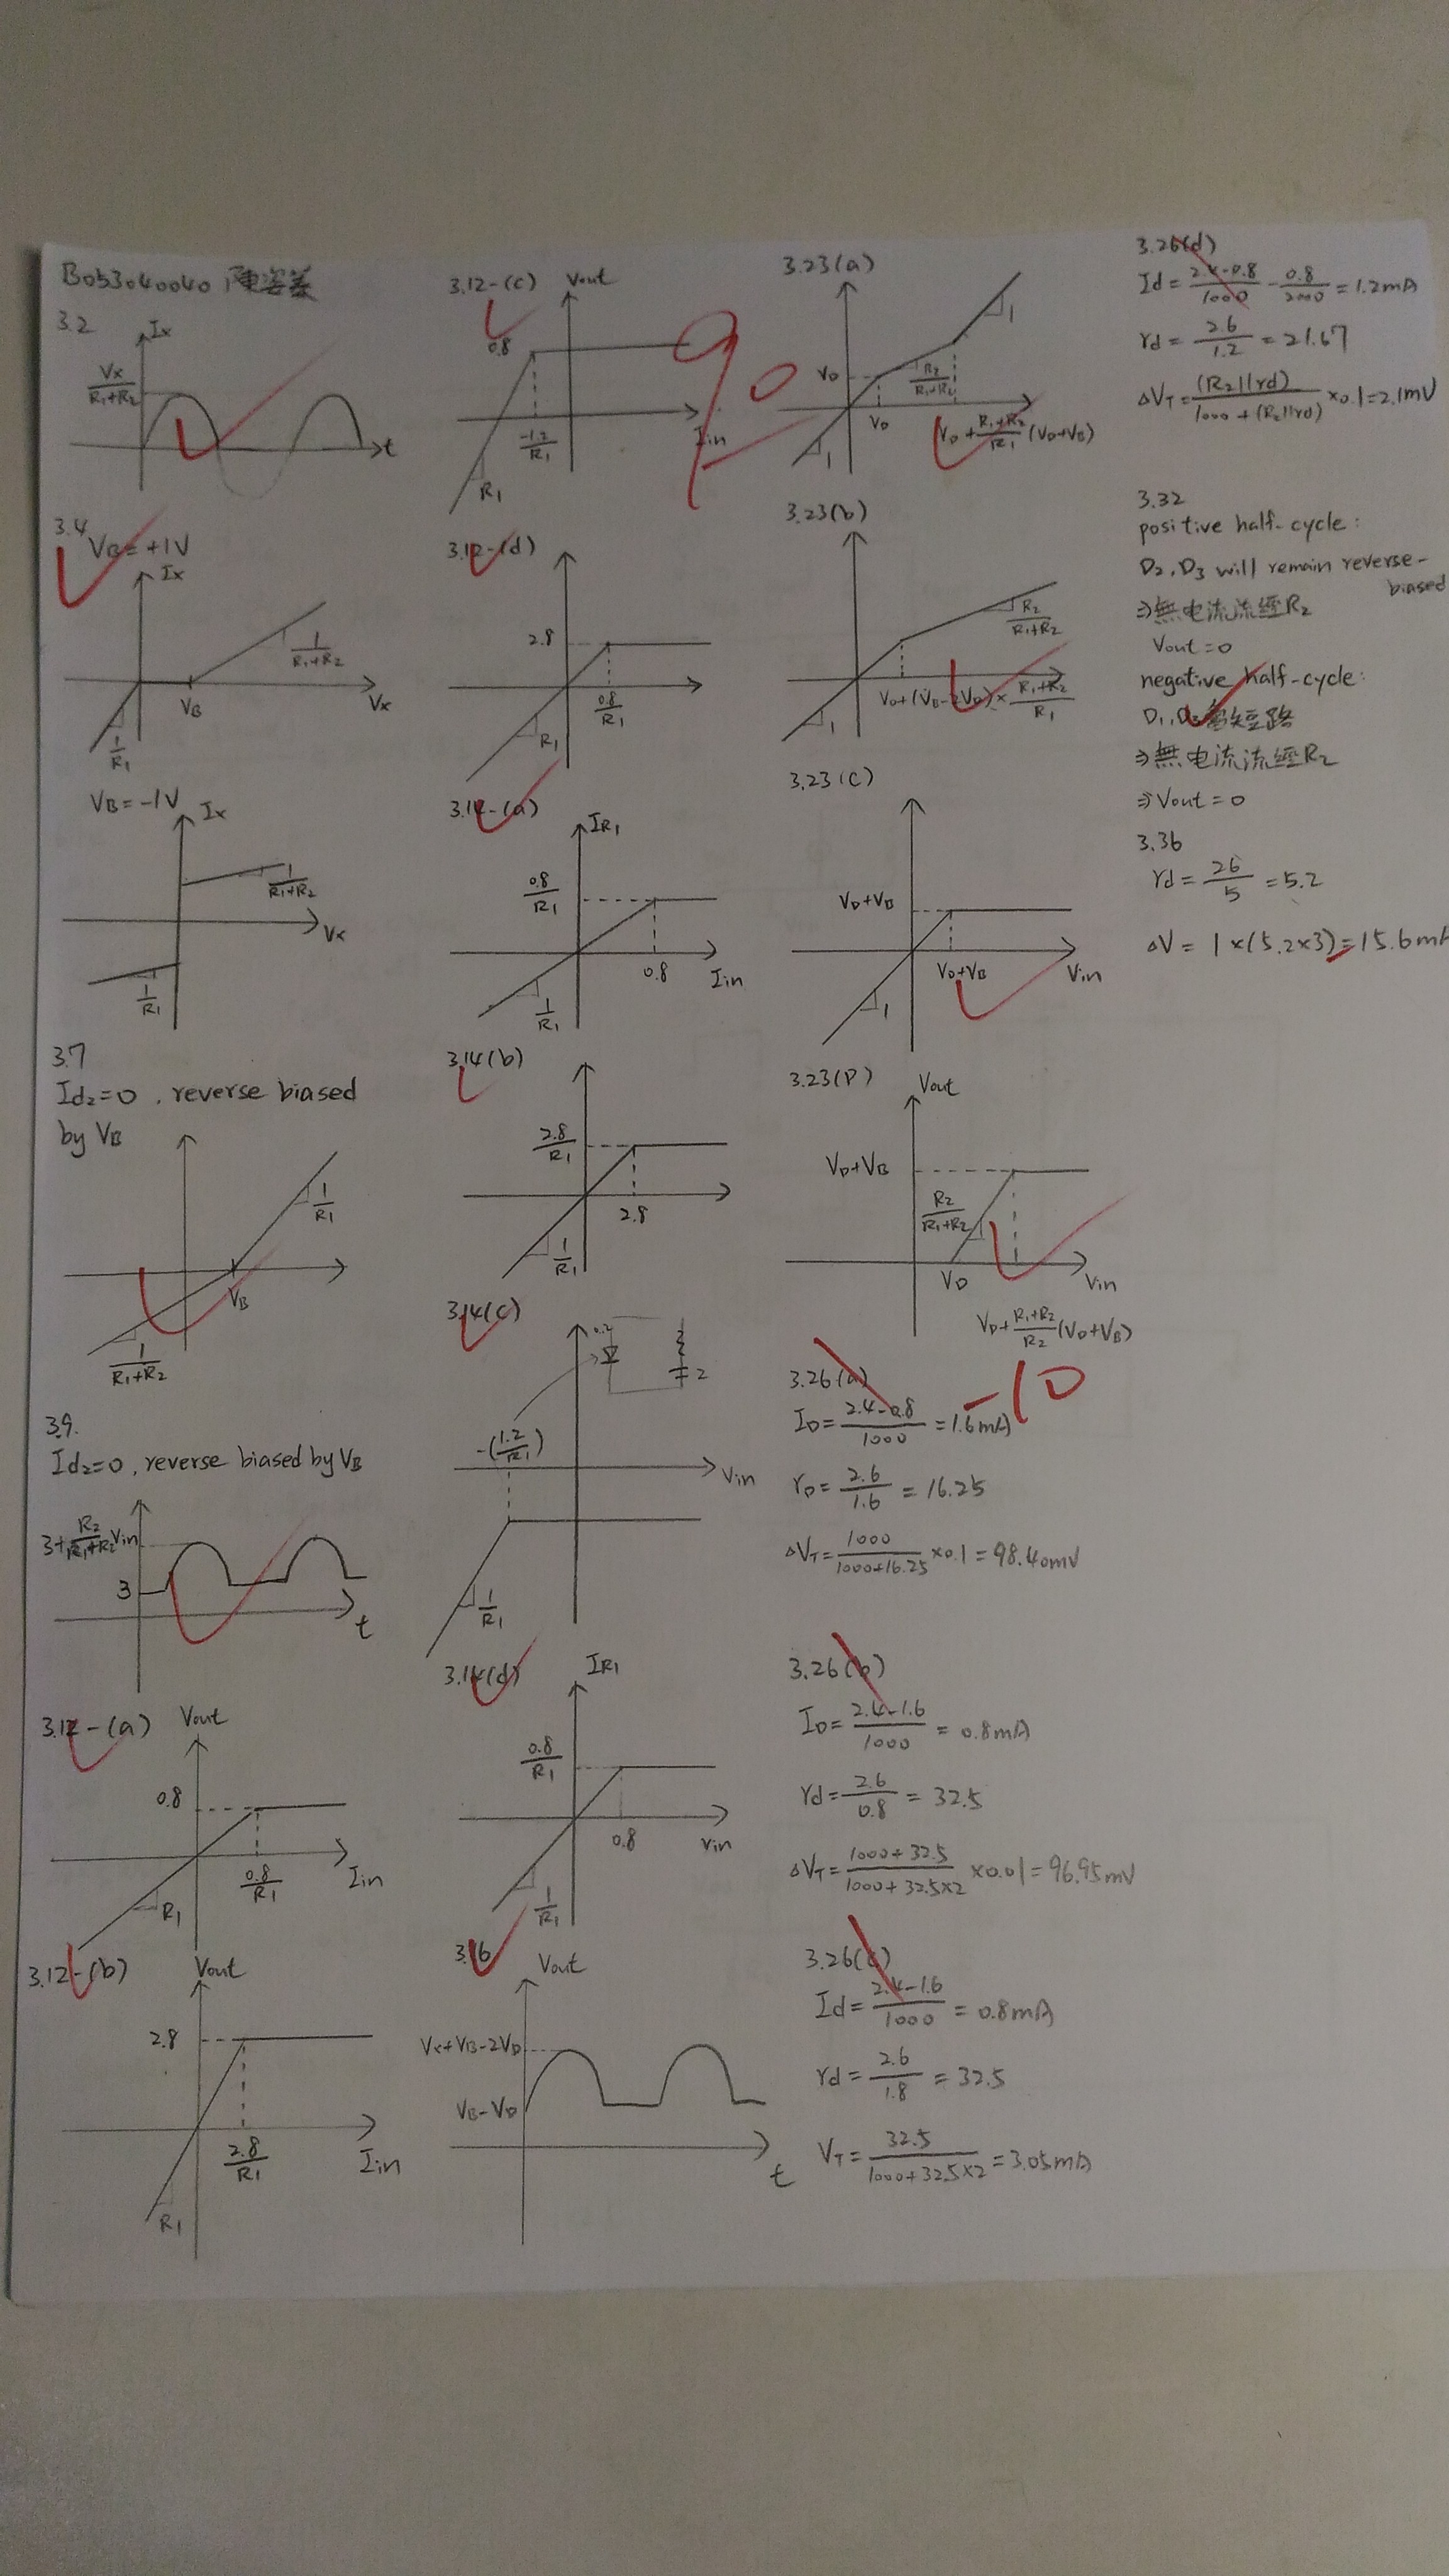 B053040040 陳姿蓁
3.2
Ix
Vx/(R1+R2)
t
3.4
VB=+1V
Ix
1/(R1+R2)
VB
Vx
1/R1
VB=-1V
Ix
1/(R1+R2)
Vx
1/R1
3.7
Id2=0 , reverse biased
by VB
1/R1
VB
1/(R1+R2)
3.9.
Id2=0 , reverse biased by VB
3+R2/(R1+R2)Vin
3
t
3.12-(a)
Vout
0.8
0.8/R1
Iin
R1
3.12-(b)
Vout
2.8
2.8/R1
Iin
R1
3.12-(c)
Vout
0.8
-1.2/R1
Iin
R1
90
3.12-(d)
2.8
0.8/R1
R1
3.14-(a)
IR1
0.8/R1
0.8
Iin
1/R1
3.14(b)
2.8/R1
2.8
1/R1
3.14(c)
0.2
2
-(1.2/R1)
Vin
1/R1
3.14(d)
IR1
0.8/R1
0.8
Vin
1/R1
3.16
Vout
Vx+VB-2VD
VB-VD
t
3.23(a)
1
VD
R2/(R1+R2)
VD
VD+(R1+R2)/R1(VD+VB)
1
3.23(b)
R2/(R1+R2)
VD+(VB-2VD)×(R1+R2)/R1
1
3.23(c)
VD+VB
VD+VB
Vin
1
3.23(D)
Vout
VD+VB
R2/(R1+R2)
VD
Vin
VD+(R1+R2)/R2(VD+VB)
3.26(a)
-10
ID=(2.4-0.8)/1000=1.6mA
rD=2.6/1.6=16.25
ΔVT=1000/(1000+16.25)×0.1=98.40mV
3.26(b)
ID=(2.4-1.6)/1000=0.8mA
rd=2.6/0.8=32.5
ΔVT=(1000+32.5)/(1000+32.5×2)×0.01=96.95mV
3.26(c)
Id=(2.4-1.6)/1000=0.8mA
rd=2.6/1.8=32.5
VT=32.5/(1000+32.5×2)=3.05mA
3.26(d)
Id=(2.4-0.8)/1000-0.8/2000=1.2mA
rd=2.6/1.2=21.67
ΔVT=(R2||rd)/(1000+(R2||rd))×0.1=2.1mV
3.32
positive half-cycle:
D2,D3 will remain reverse-
biased
⇒無电流流經R2
Vout=0
negative half-cycle:
短路
⇒無电流流經R2
⇒Vout=0
3.36
rd=26/5=5.2
ΔV=1×(5.2×3)=15.6mA